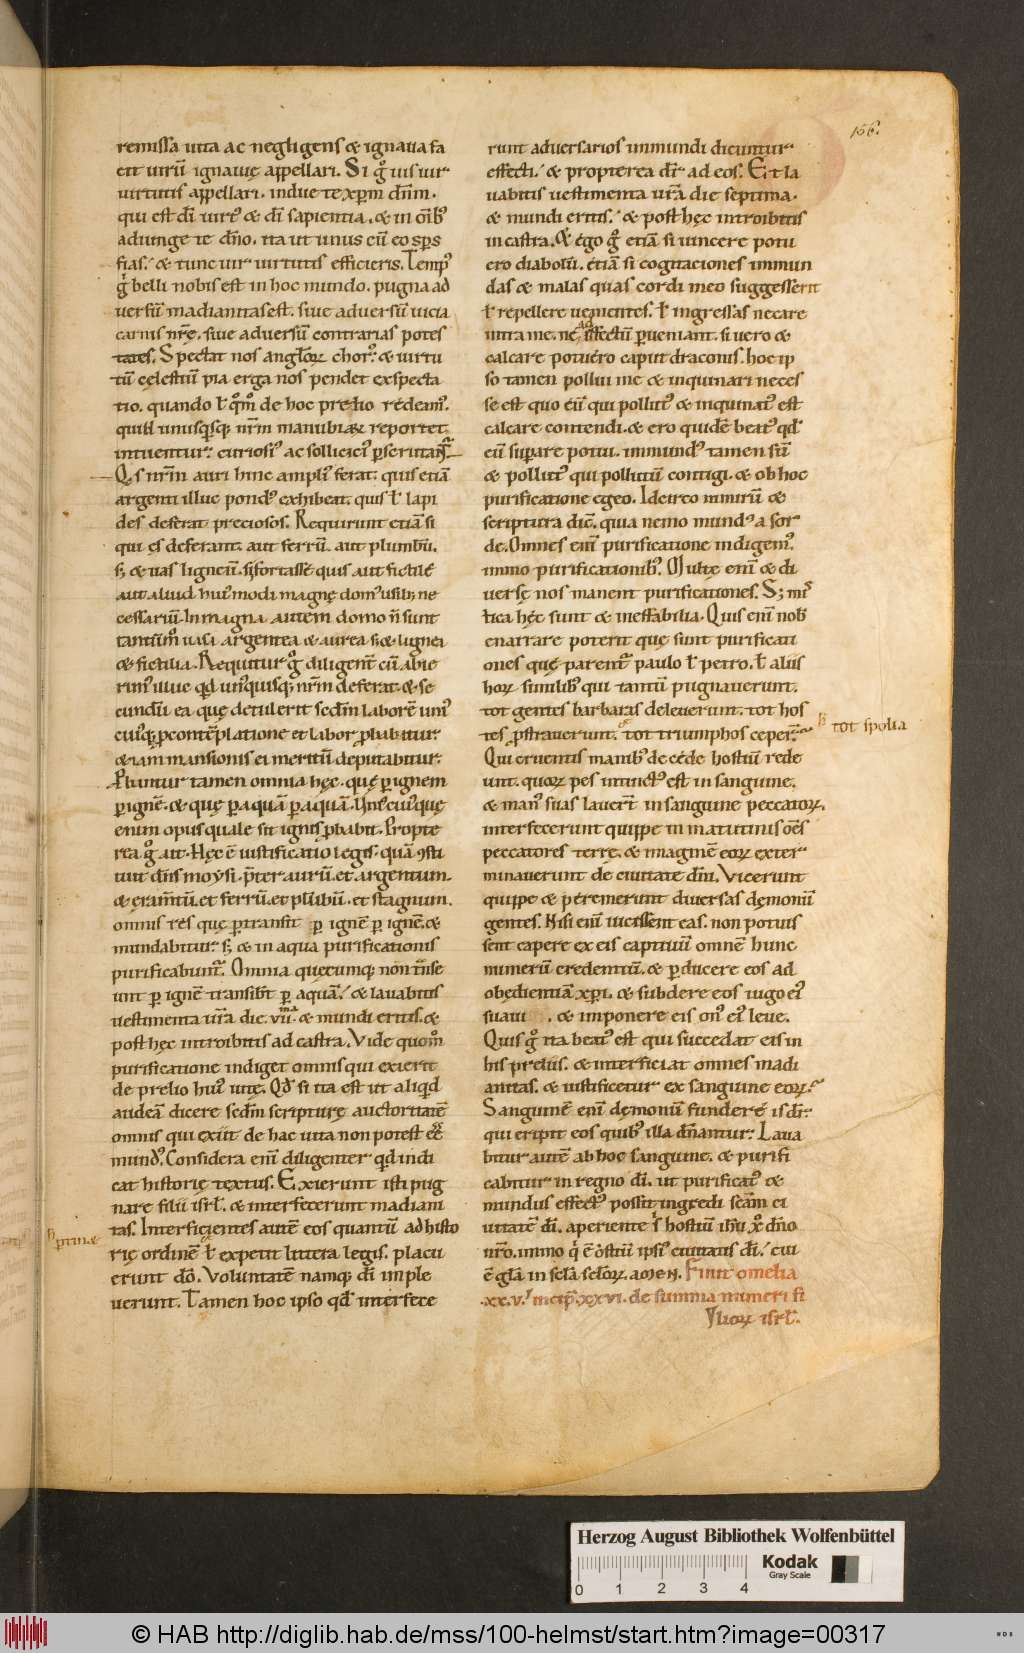 156.
remissa uita ac negligens & ignaua fa
cit uirū ignauę appellari. Si g° uis uir
uirtutis appellari. indue te xp̄m dn̄m.
qui est dī uirt' & dī sapientia. & in om̄ib'
adiunge te dn̄o. ita ut unus cū eo sp̄s
fias. & tunc uir uirtutis efficieris. Temp'
g° belli nobis est in hoc mundo. pugna ad
uersū madianitas est. siue aduersū uicia
carnis nr̄ę. siue aduersū contrarias potes
tates. Spectat nos angl̄oꝝ chor'. & uirtu
tū cęlestiū pia erga nos pendet exspecta
tio. quando ł qm̄ de hoc prelio redeam'.
quid unusq̄sq; nr̄m manubiaꝝ reportet.
intuentur. curiosi' ac sollicici' ꝑscrutant̄.
Q's nr̄m auri hinc ampli' ferat. quis etiā
argenti illuc pond' exhibeat. quis ł lapi
des deferat preciosos. Requirunt etiā si
qui ęs deferant. aut ferrū. aut plumbū.
s; & uas ligneū. s; fortasse quis aut fictilē
aut aliud hui' modi magnę dom' usib; ne
cessariū. In magna autem domo n̄ sunt
tantūm° uasa argentea & aurea s; & lignea
& fictilia. Requitur g° diligent̄ cū abie
rim' illuc qd̄ un'quisq; nr̄m deferat. & se
cundū ea quę detulerit sedm̄ laborē uni'
cui'q; ꝑ contēplatione et labor ꝓbabitur
& iam mansionis ei meritū deputabitur.
Ꝓbantur tamen omnia hęc. quę ꝑ ignem
ꝑ ignē. & quę ꝑ aquā ꝑ aquā. Uni' cui'quę
enim opus quale sit ignis ꝓbabit. Propte
rea g° ait. Hęc ē iustificatio legis. quā ꝯsti
tuit dn̄s moysi. p̄ter aurū. et argentum.
& eram̄tū. et ferrū. et plūbū. et stagnum.
omnis res quę ꝑtransit ꝑ ignē ꝑ ignē. &
mundabitur. s; & in aqua purificationis
purificabunt̄. Omnia quęcumq; non trāse
unt ꝑ ignē transibt̄ ꝑ aquā. & lauabitis
uestimenta ur̄a die. vii. & mundi eritis. &
post hęc introibitis ad castra. Vide quom°
purificatione indiget omnis qui exierit
de prelio hui' uitę. Qd̄ si ita est ut aliqd̄
audeā dicere sedm̄ scripturę auctoritatē
omnis qui exiit de hac uita non potest eē
mund'. Considera enī diligenter qd̄ indi
cat historię textus. Exierunt isti pug
nare filii isrł. & interfecerunt madiani
tas. Interficientes autē eos quantū ad histo
rię ordinē ł expetit littera legis. placu
erunt dō. Voluntatē namq; dī imple
uerunt. Tamen hoc ipso qd̄ interfece
runt aduersarios immundi dicuntur
effecti. & propterea dr̄ ad eos. Et la
uabitis uestimenta ur̄a die septima.
& mundi eritis. & post hęc introibitis
in castra. & ego g° etiā si uincere potu
ero diabolū. etiā si cogitaciones immun
das & malas quas cordi meo suggesserit
ł repellere uenientes. ł ingressas necare
intra me. ne ad effectū ꝑueniant. si uero &
calcare potuero caput draconis. hoc ip
so tamen pollui me & inquinari neces
se est quo eū qui pollut' & inquinat' est
calcare contendi. & ero quidē beat' qd̄
eū suꝑare potui. immund' tamen sū
& pollut' qui pollutū contigi. & ob hoc
purificatione egeo. Idcirco nimirū &
scriptura dic̄. quia nemo mund' a sor
de. Omnes enī purificatione indigem'.
immo purificationib'. Multę enī & di
uersę nos manent purificationes. S; mis
tica hęc sunt & ineffabilia. Quis enī nob̄
enarrare poterit quę sunt purificati
ones quę parent̄ paulo ł petro. ł aliis
hoꝝ similib' qui tantū pugnauerunt.
tot gentes barbaras deleuerunt. tot hos
tes ꝓstrauerunt. tot triumphos ceper̄.
tot spolia
Qui cruentis manib' de cede hostiū rede
unt. quoꝝ pes intinct' est in sanguine.
& man' suas lauer̄t in sanguine peccatoꝝ.
interfecerunt quippe in matutinis om̄s
peccatores terrę. & imaginē eoꝝ exter
minauerunt de ciuitate dn̄i. Vicerunt
quippe & peremerunt diuersas demoniū
gentes. Nisi enī uicissent eas. non potuis
sent capere ex eis captiuū omnē hunc
numerū credentiū. & ꝑducere eos ad
obędientiā xp̄i. & subdere eos iugo ei'
suaui. & imponere eis on' ei' leue.
Quis g° ita beat' est qui succedat eis in
his preliis. & interficiat omnes madi
anitas. & iustificetur ex sanguine eoꝝ.
Sanguinē enī demoniū fundere is dr̄.
qui eripit eos quib' illa dn̄antur. Laua
bitur autē ab hoc sanguine. & purifi
cabitur in regno dī. ut purificat' &
mundus effect' possit ingredi scām ci
uitatē dī. aperiente s' hostiū ihū xp̄o dn̄o
nr̄o. immo q' ē ostiū ipsi' ciuitatis dī. cui
ē gła in scła scłoꝝ. amen. Finit omelia
.xx.v. incip̄. xxvi. de summa numeri fi
lioꝝ isrł.
Herzog August Bibliothek Wolfenbüttel
Kodak
Gray Scale
0 1 2 3 4
© HAB http://diglib.hab.de/mss/100-helmst/start.htm?image=00317